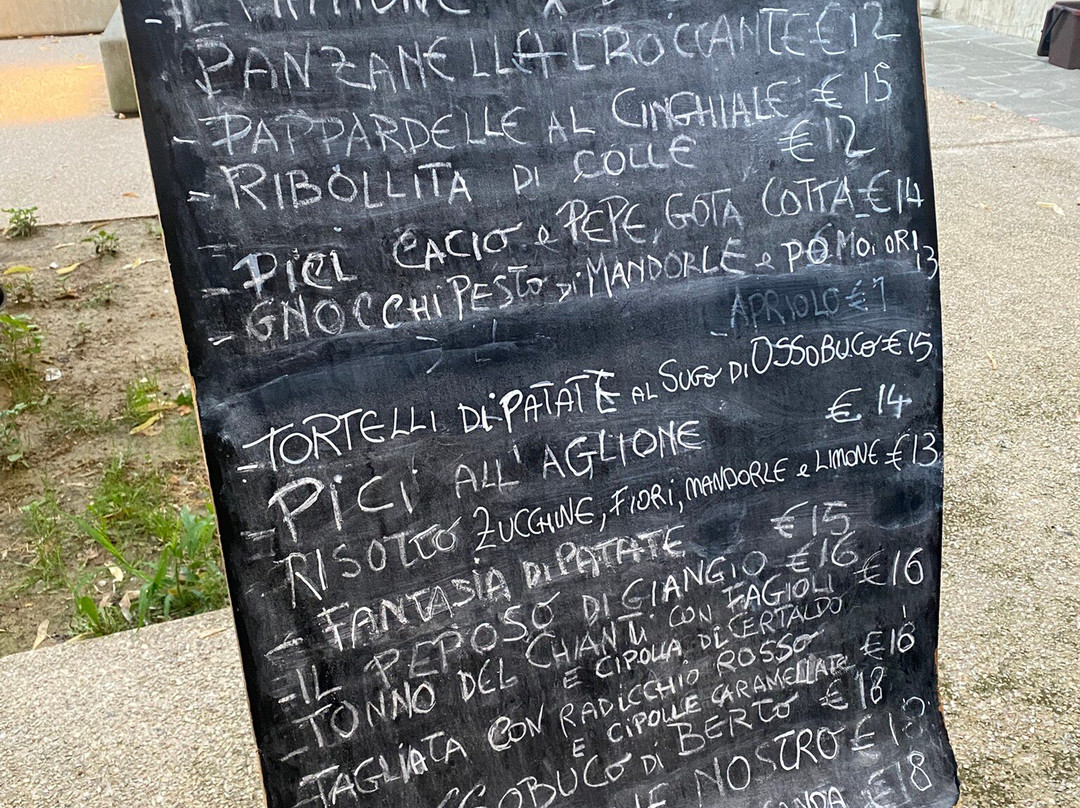 - PANZANELLA CROCCANTE €12
- PAPPARDELLE AL CINGHIALE € 15
- RIBOLLITA DI COLLE €12
- PICI CACIO e PEPE, GOTA COTTA €14
- GNOCCHI PESTO di MANDORLE e POMODORI 13
- APRIOLO € 7
- TORTELLI DI PATATE AL SUGO DI OSSOBUCO €15
- PICI ALL'AGLIONE € 14
- RISOTTO ZUCCHINE, FIORI, MANDORLE e LIMONE €13
- FANTASIA DI PATATE €15
- IL PEPOSO DI GIANGIO €16
- TONNO DEL CHIANTI CON FAGIOLI €16
E CIPOLLA DI CERTALDO
- TAGLIATA CON RADICCHIO ROSSO €18
E CIPOLLE CARAMELLATE
OSSOBUCO DI BERTO € 18
NOSTRO €
€18